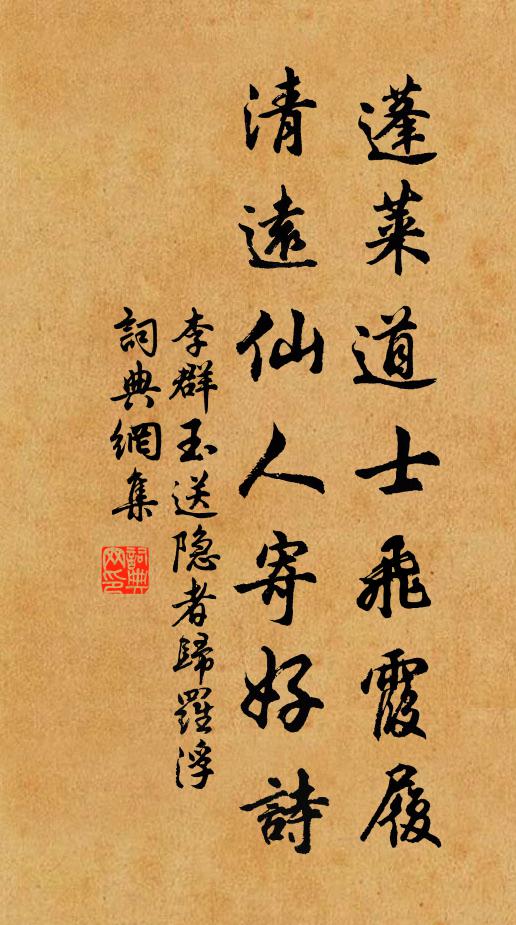 蓬萊道士飛霞履
清遠仙人寄好詩
李群玉送隐者歸羅浮
詞典網集
詞典
网印